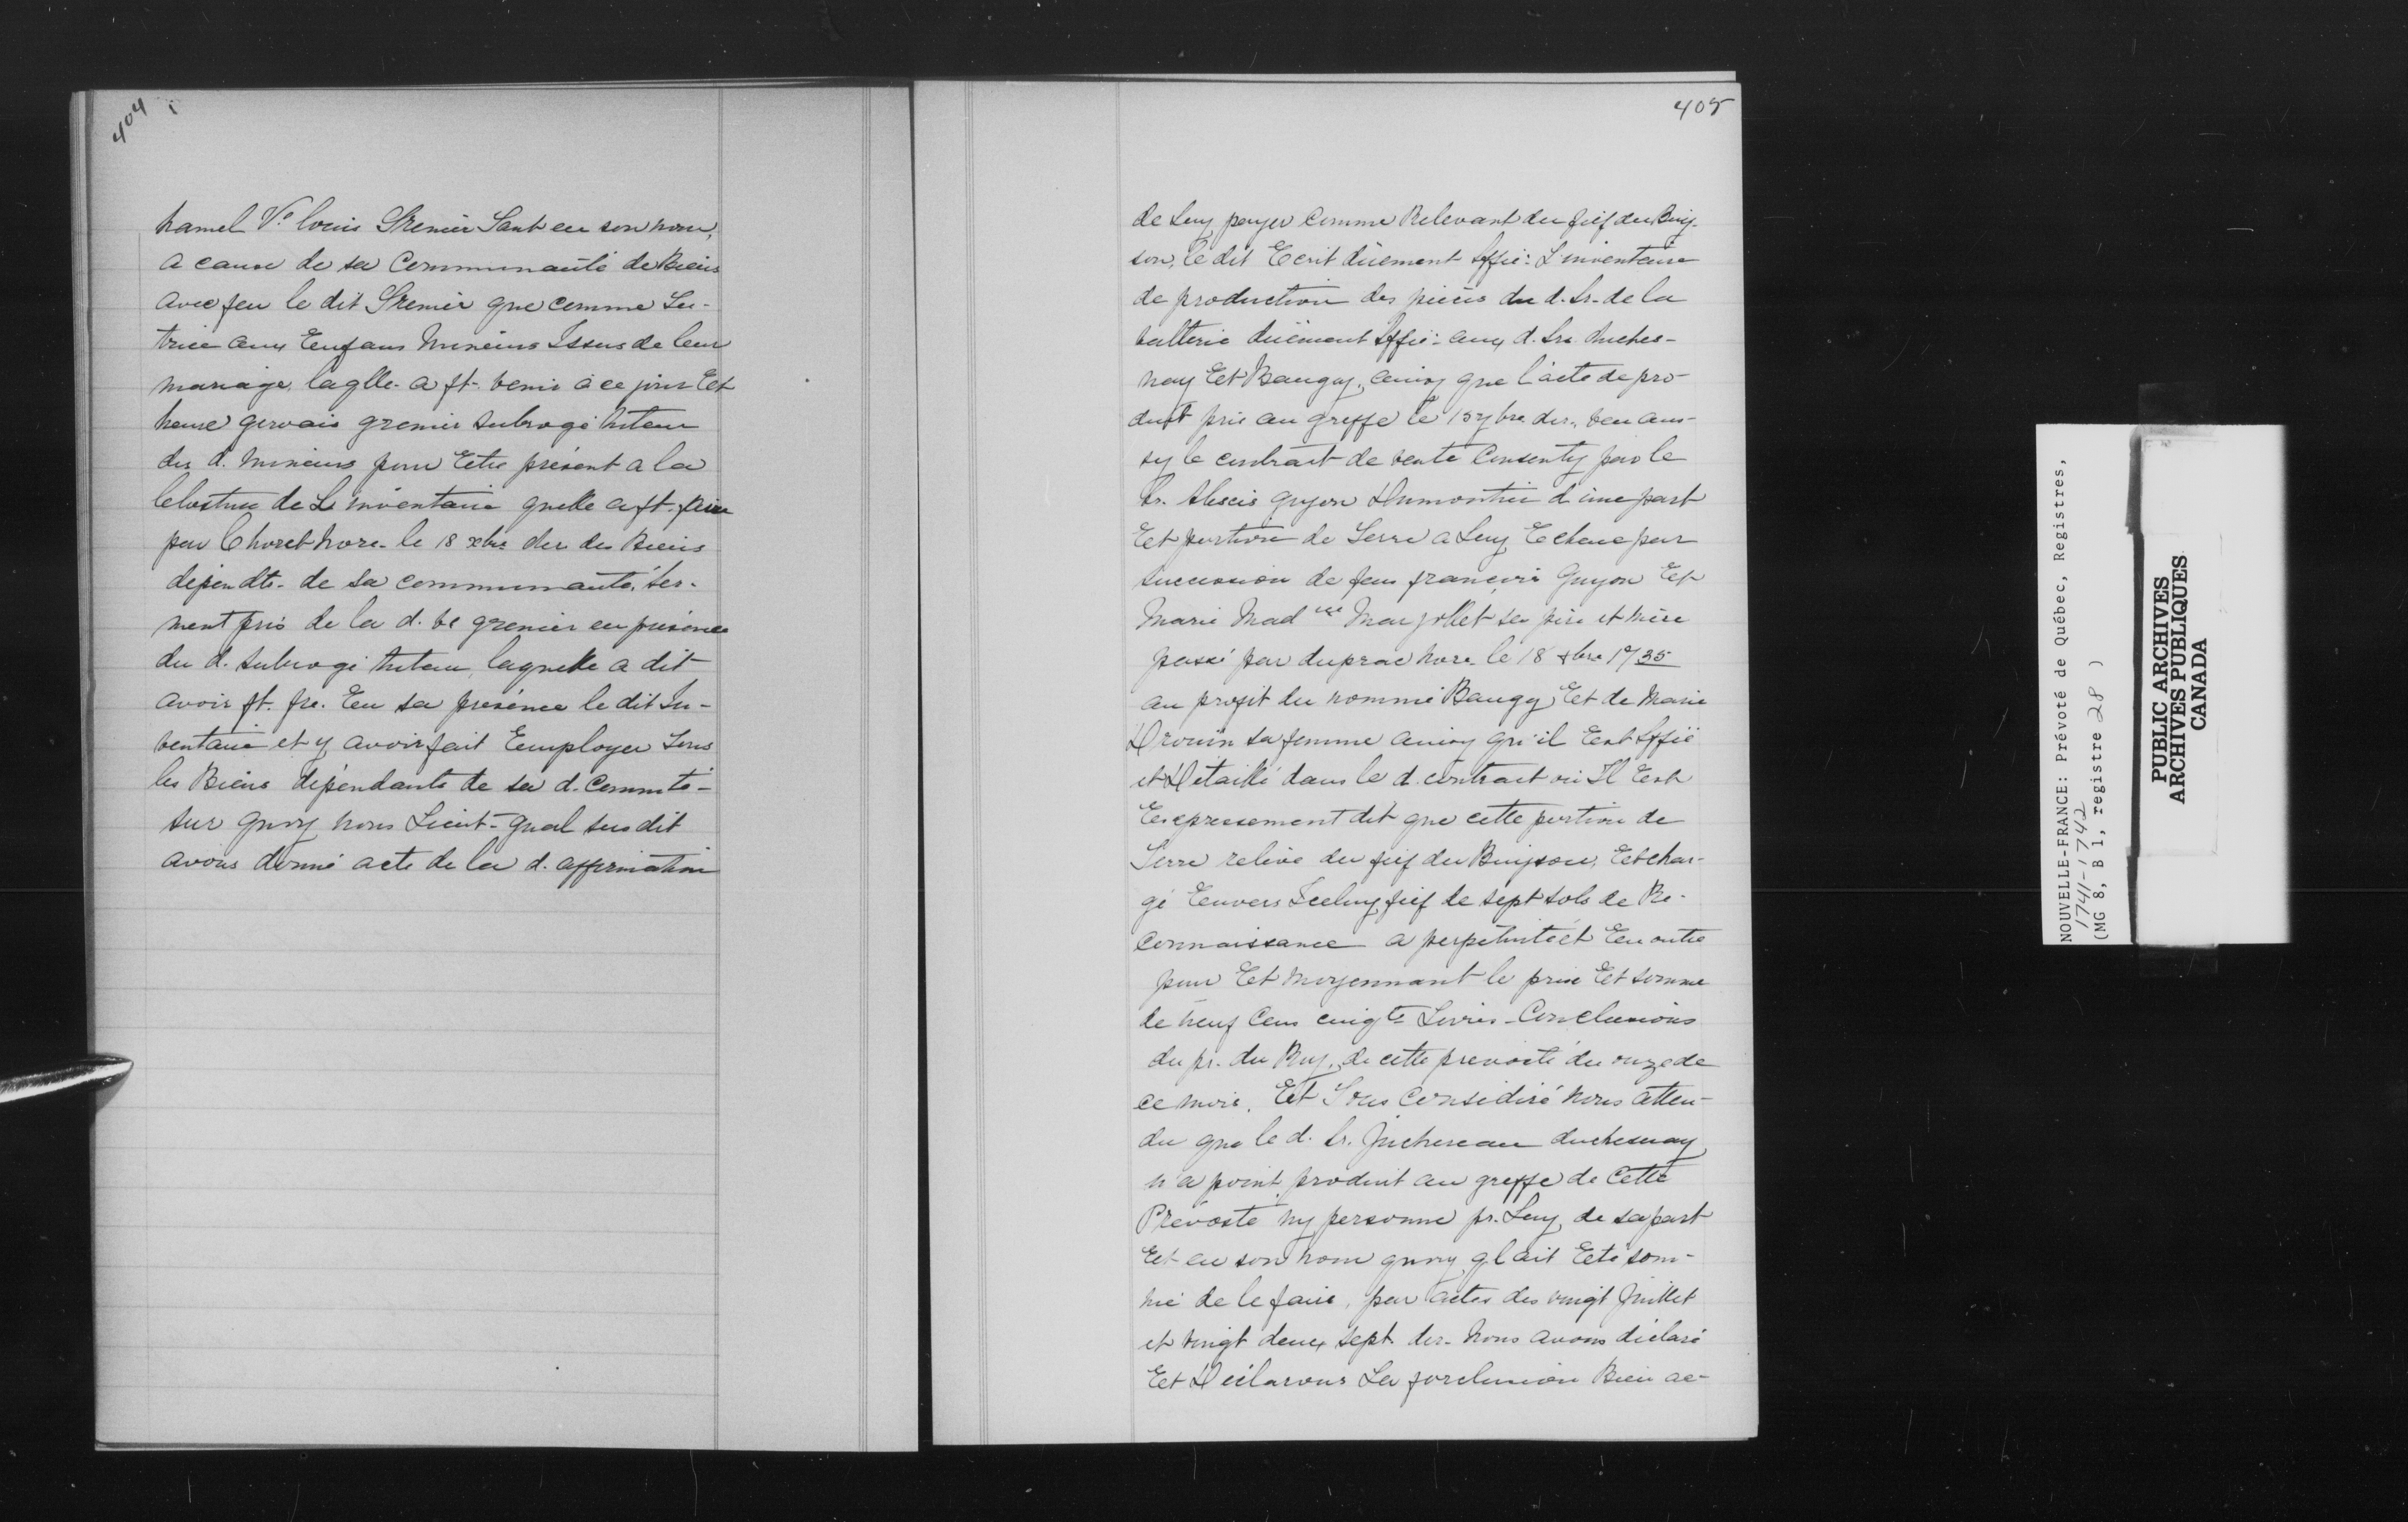 404
hamel Ve. louis Grenier Tant en son nom,
a cause de sa Communauté de Biens
avec feu le dit Grenier que comme Tu-
trice aux Enfans Mineurs Issus de leur
mariage, laqlle. a ft. venir à ce jour Et
heure gervais grenier subrogé tuteur
des d. mineurs pour Estre présent a la
Closture de L'inventaire quelle a ft. faire
par Choret Nore. le 18 xbre der des Biens
dépendts. de sa communauté, ser-
ment pris de la d. ve grenier en présence
du d. subrogé tuteur, laquelle a dit
avoir ft. fre. En sa présence le dit In-
ventaire et y avoir fait Employer Tous
les Biens dépendants de sa d. Commté-
sur quoy nous Lieut-gnal susdit
avons donné acte de la d. affirmation
405
de Luy payer Comme Relevant du fief du Buis-
son, le dit Ecrit düement Siffié: L'inventaire
de production des pièces du d. Sr. de la
valterie düement Siffié: aux d. Srs. duches-
nay Et Baugy, ainsy que l'acte de pro-
duit pris au greffe le 15 7bre der., veu aus-
sy le contrait de vente Consenty par le
Sr. Alexis guyon Dumontier d'une part
Et portion de Terre a Luy Echeue par
succession de feu françois Guyon Et
Marie Madne Marsollet ses père et mère
passé par duprac Nore. le 18 xbre 1735
au profit du nommé Baugy Et de Marie
Drouin sa femme ainsy qu'il Est Siffié
et Détaillé dans le d. contract où Il Est
Expressement dit que cette portion de
Terre relève du fief du Buisson, Et char-
gé Envers Iceluy fief de sept sols de Re-
connaissance a perpétuité et En outre
pour Et moyennant le prix Et somme
de neuf Cens cinqte Livres - Conclusions
du pr. du Roy, de cette prevosté du onze de
ce mois. Et Tout Considéré Nous atten-
du que le d. Sr. Juchereau duchesnay
n'a point produit au greffe de Cette
Prévosté ny personne pr. Luy de sa part
Et en son nom quoy ql ait Eté som-
mé de le faire, par actes des vingt Juillet
et vingt deux sept. der. Nous avons déclaré
Et Déclarons La forclusion Bien ac-
NOUVELLE-FRANCE: Prévoté de Québec, Registres,
1741-1742
(MG 8, B 1, registre 28 )
PUBLIC ARCHIVES
ARCHIVES PUBLIQUES
CANADA